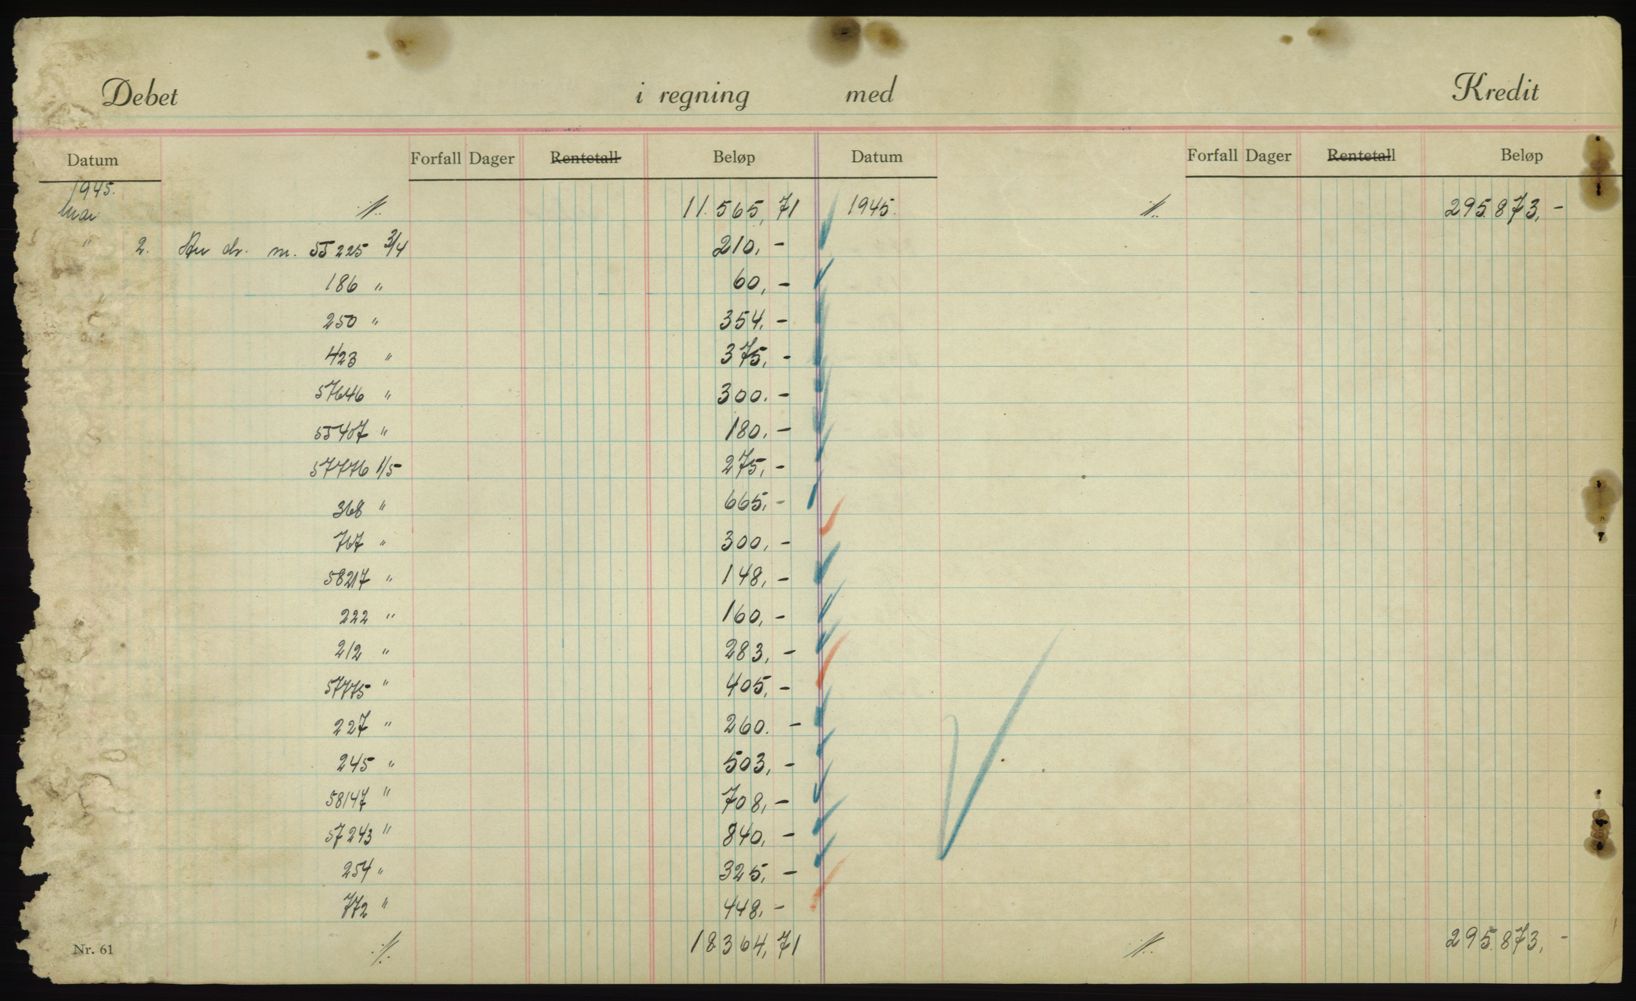 Debet i regning med Kredit
Datum Forfall Dager Rentetall Beløp Datum Forfall Dager Rentetall Beløp
1945.
Mai 11.565,71 1945. 295.873,-
" 2. dr. nr. 55225 3/4 210,-
186 " 60,-
250 " 354,-
423 " 375,-
57646 " 300.-
55407 " 180.-
57776 1/5 275,-
368 " 665,-
767 " 300,-
58217 " 148,-
222 " 160,-
212 " 283,-
57775 " 405,-
227 " 260.-
245 " 503,-
58147 " 708,-
57243 " 840,-
254 " 325,-
772 " 448,-
Nr. 61 18364,71 295.873,-